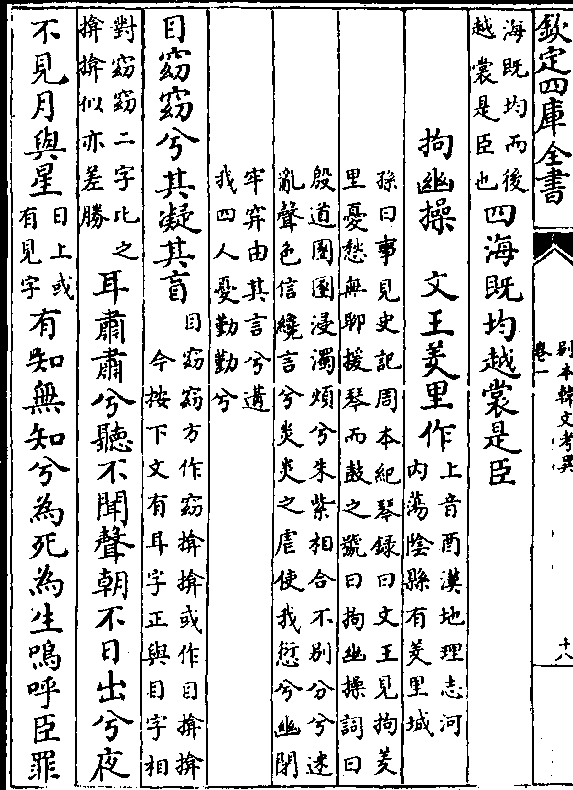 欽定四庫全書
别本韓文考異
卷一
十八
海既均而後
越裳是臣也
四海既均越裳是臣
拘幽操 文王羑里作
上音酉漢地理志河
内蕩隂縣有羑里城
孫曰事見史記周本紀琴録曰文王見拘羑
里憂愁無聊援琴而鼓之號曰拘幽操詞曰
殷道圂圂浸濁煩兮朱紫相合不别分兮迷
亂聲色信繞言兮炎炎之虐使我愆兮幽閉
牢穽由其言兮遘
我四人憂勤勤兮
目窈窈兮其凝其盲
目窈窈方作窈揜揜或作目揜揜
今按下文有耳字正與目字相
對窈窈二字比之
揜揜似亦差勝
耳肅肅兮聽不聞聲朝不日出兮夜
不見月與星
日上或
有見字
有知無知兮為死為生嗚呼臣罪